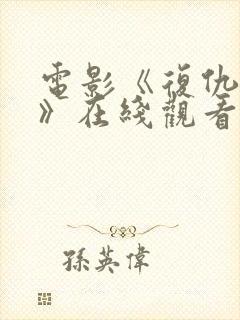 電影《復仇
》在綫觀看
孫英偉